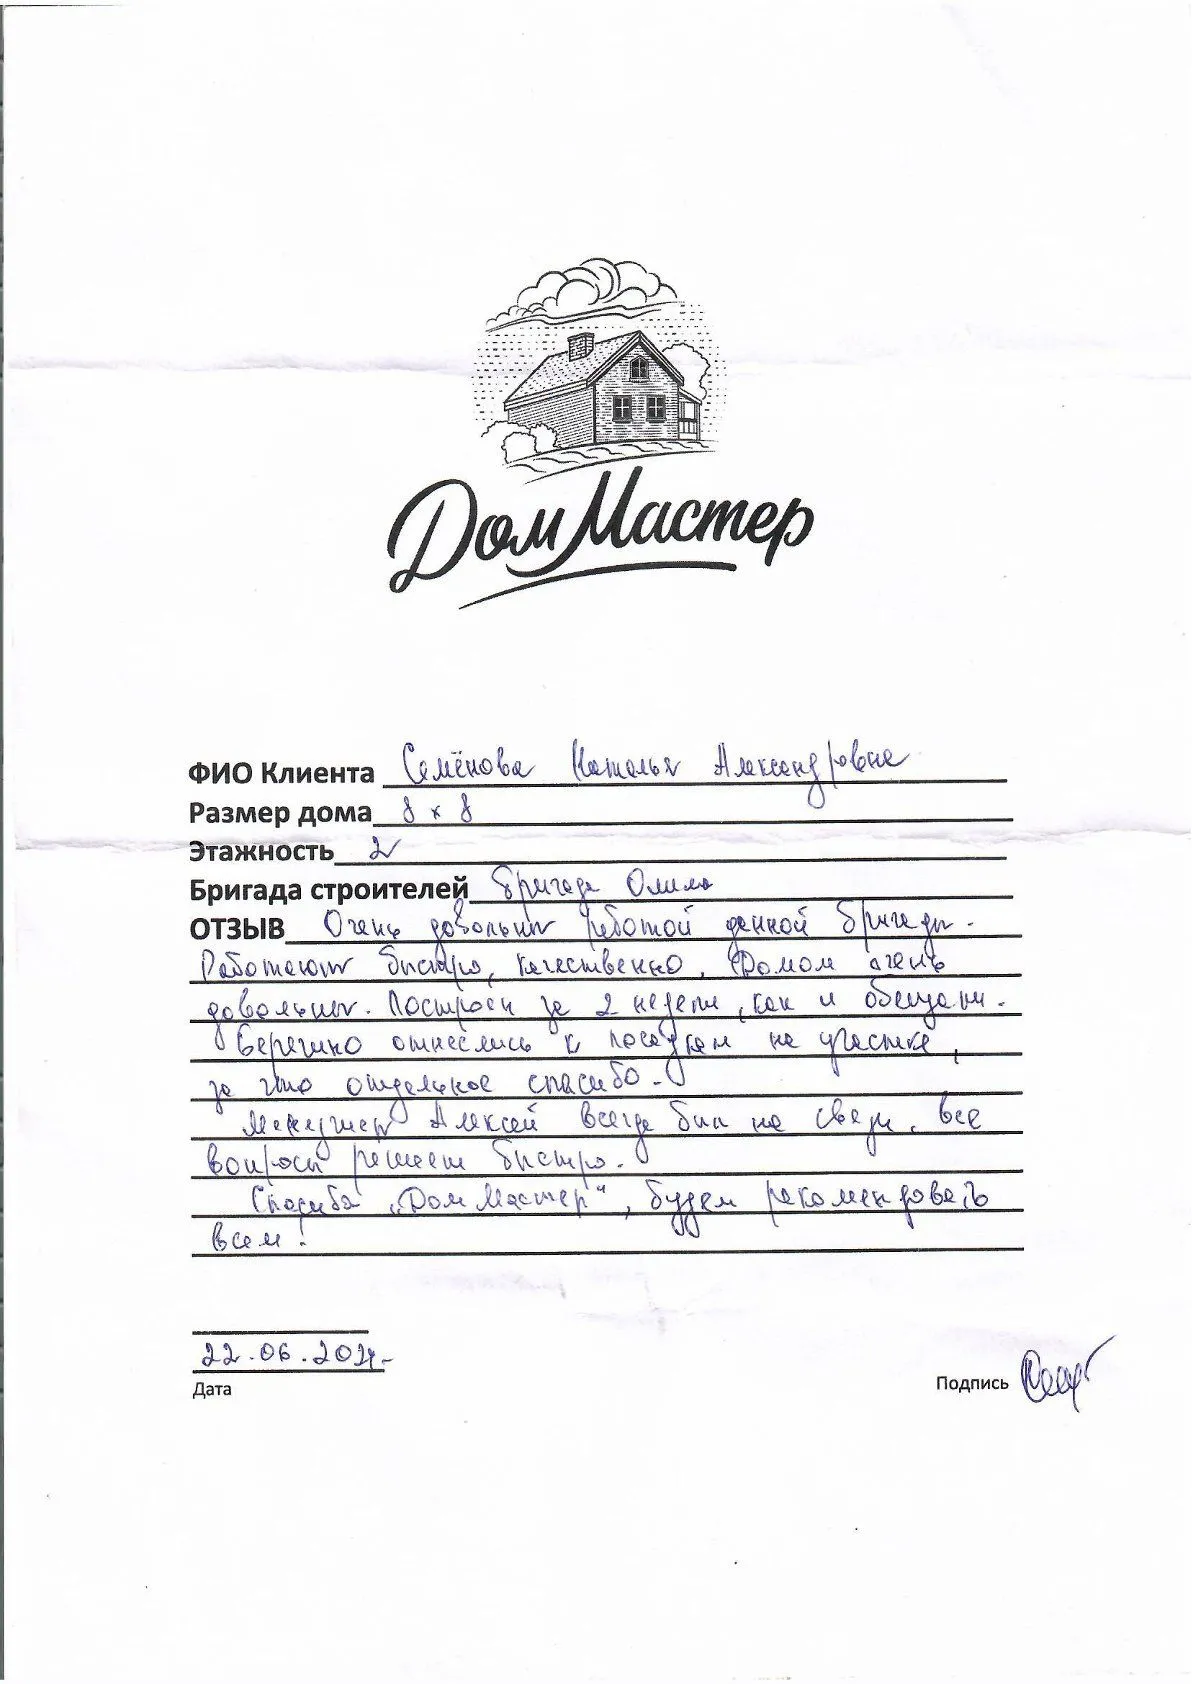 Дом Мастер
ФИО Клиента Семёнова Наталья Александровна
Размер дома 8 х 8
Этажность 2
Бригада строителей Бригада Олима
ОТЗЫВ Очень довольны работой данной бригады.
Работают быстро, качественно. Домом очень
довольны. Построен за 2 недели, как и обещали.
Бережно отнеслись к посадкам на участке,
за это отдельное спасибо.
Менеджер Алексей всегда был на связи, все
вопросы решает быстро.
Спасибо „Дом Мастер", будем рекомендовать
всем!
22.06.2021
Дата
Подпись